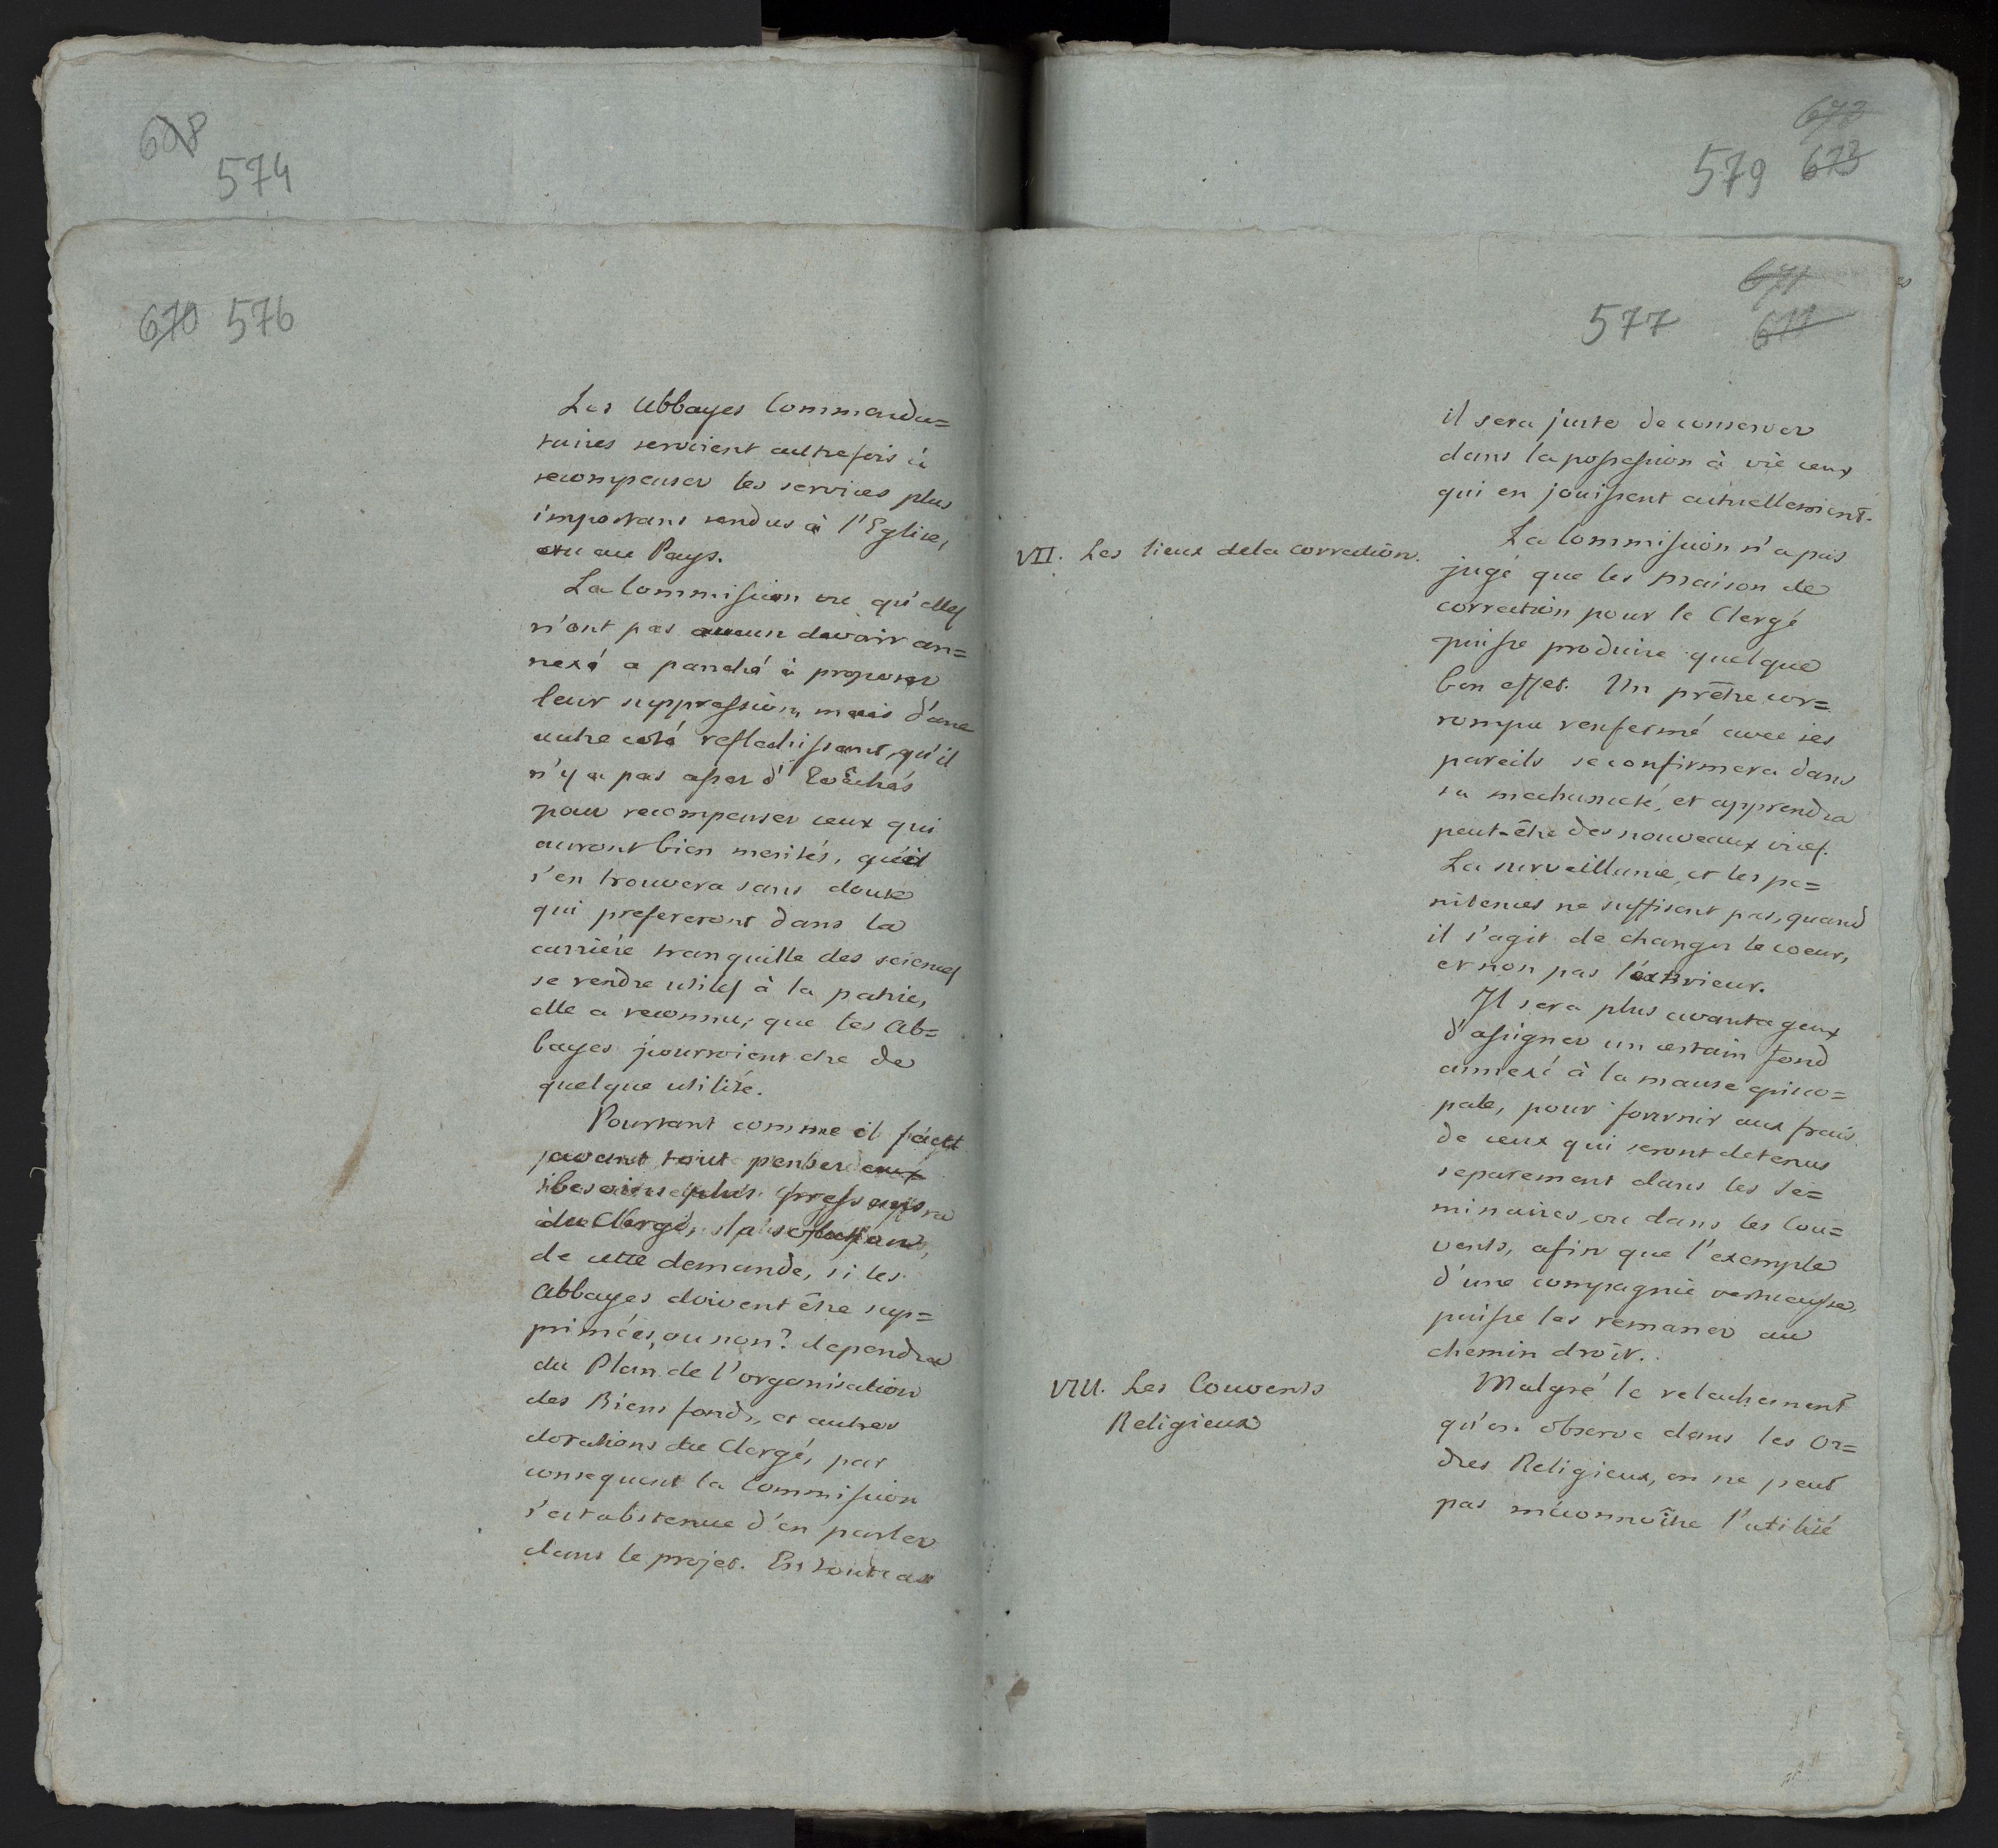 608
574
670 576
Les Abbayes Commenda=
taires servoient autrefois à
recompenser les services plus
importans rendus à l'Eglise,
ou au Pays.
La Commission vu qu'elles
n'ont pas aucun devoir an=
nexé a panché à proposer
leur suppression, mais d'une
autre coté reflechissant, qu'il
n'y a pas assez d'Evêchés
pour recompenser ceux qui
auront bien merités, qu'il
s'en trouvera sans doute
qui prefereront dans la
carriére tranquille des sciences
se rendre utiles à la patrie,
elle a reconnu, que les Ab=
bayes pourroient etre de
quelque utilité.
Pourtant comme il faut
avant tout penser aux
besoins plus pressans
du Clergé, la solution
de cette demande, si les
Abbayes doivent être sup=
primées, ou non? dependra
du Plan de l'organisation
des Biens fonds, et autres
dotations du Clergé, par
consequent la Commission
s'est abstenue d'en parler
dans le projet. En tout cas
672
579 673
671
577 671
il sera juste de conserver
dans la possession à vie ceux
qui en jouissent actuellement.
VII. Les lieux de la correction.
La Commission n'a pas
jugé que les maison de
correction pour le Clergé
puisse produire quelque
bon effet. Un prêtre cor=
rompu renfermé avec ses
pareils se confirmera dans
sa mechanceté, et apprendra
peut-être des nouveaux vices.
La surveillance, et les pe=
nitences ne suffisent pas, quand
il s'agit de changer le coeur,
et non pas l'exterieur.
Il sera plus avantageux
d'assigner un certain fond
annexé à la manse episco=
pale, pour fournir aux frais
de ceux qui seront detenus
separement dans les Se=
minaires, ou dans les Cou=
vents, afin que l'exemple
d'une compagnie vertueuse,
puisse les remaner au
chemin droit.
VIII. Les Couvents
Religieux
Malgré le relachement
qu'on observe dans les Or=
dres Religieux, on ne peut
pas méconnoître l'utilité